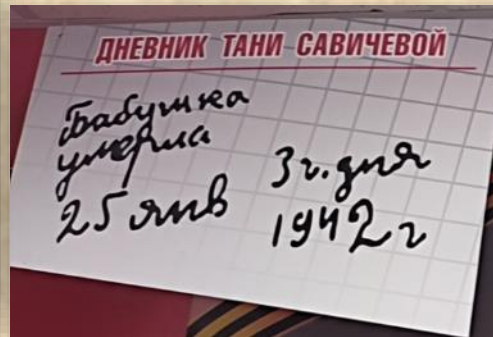 ДНЕВНИК ТАНИ САВИЧЕВОЙ
Бабушка
умерла
25 янв 3 ч. дня
1942 г